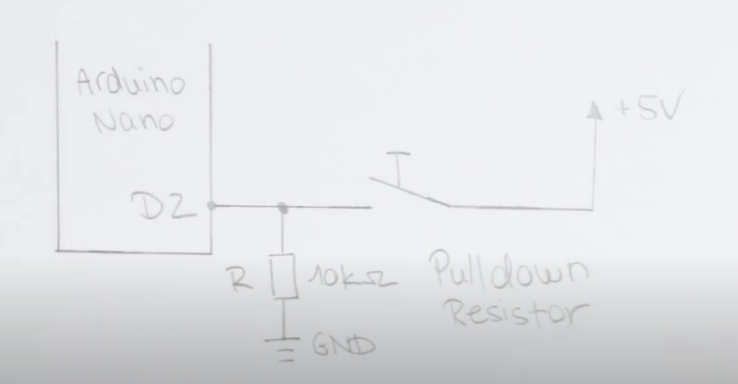 Arduino
Nano
+5V
D2
R
10kΩ
Pulldown
Resistor
GND